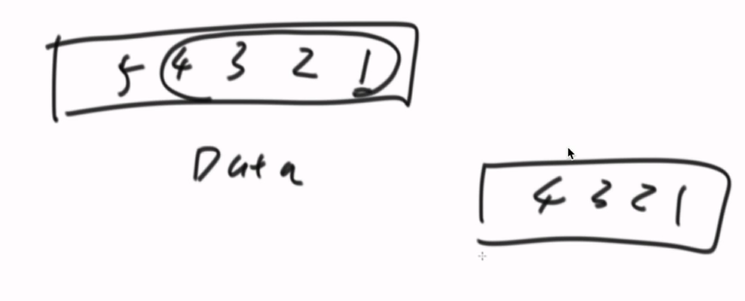 5 4 3 2 1
Data
4 3 2 1